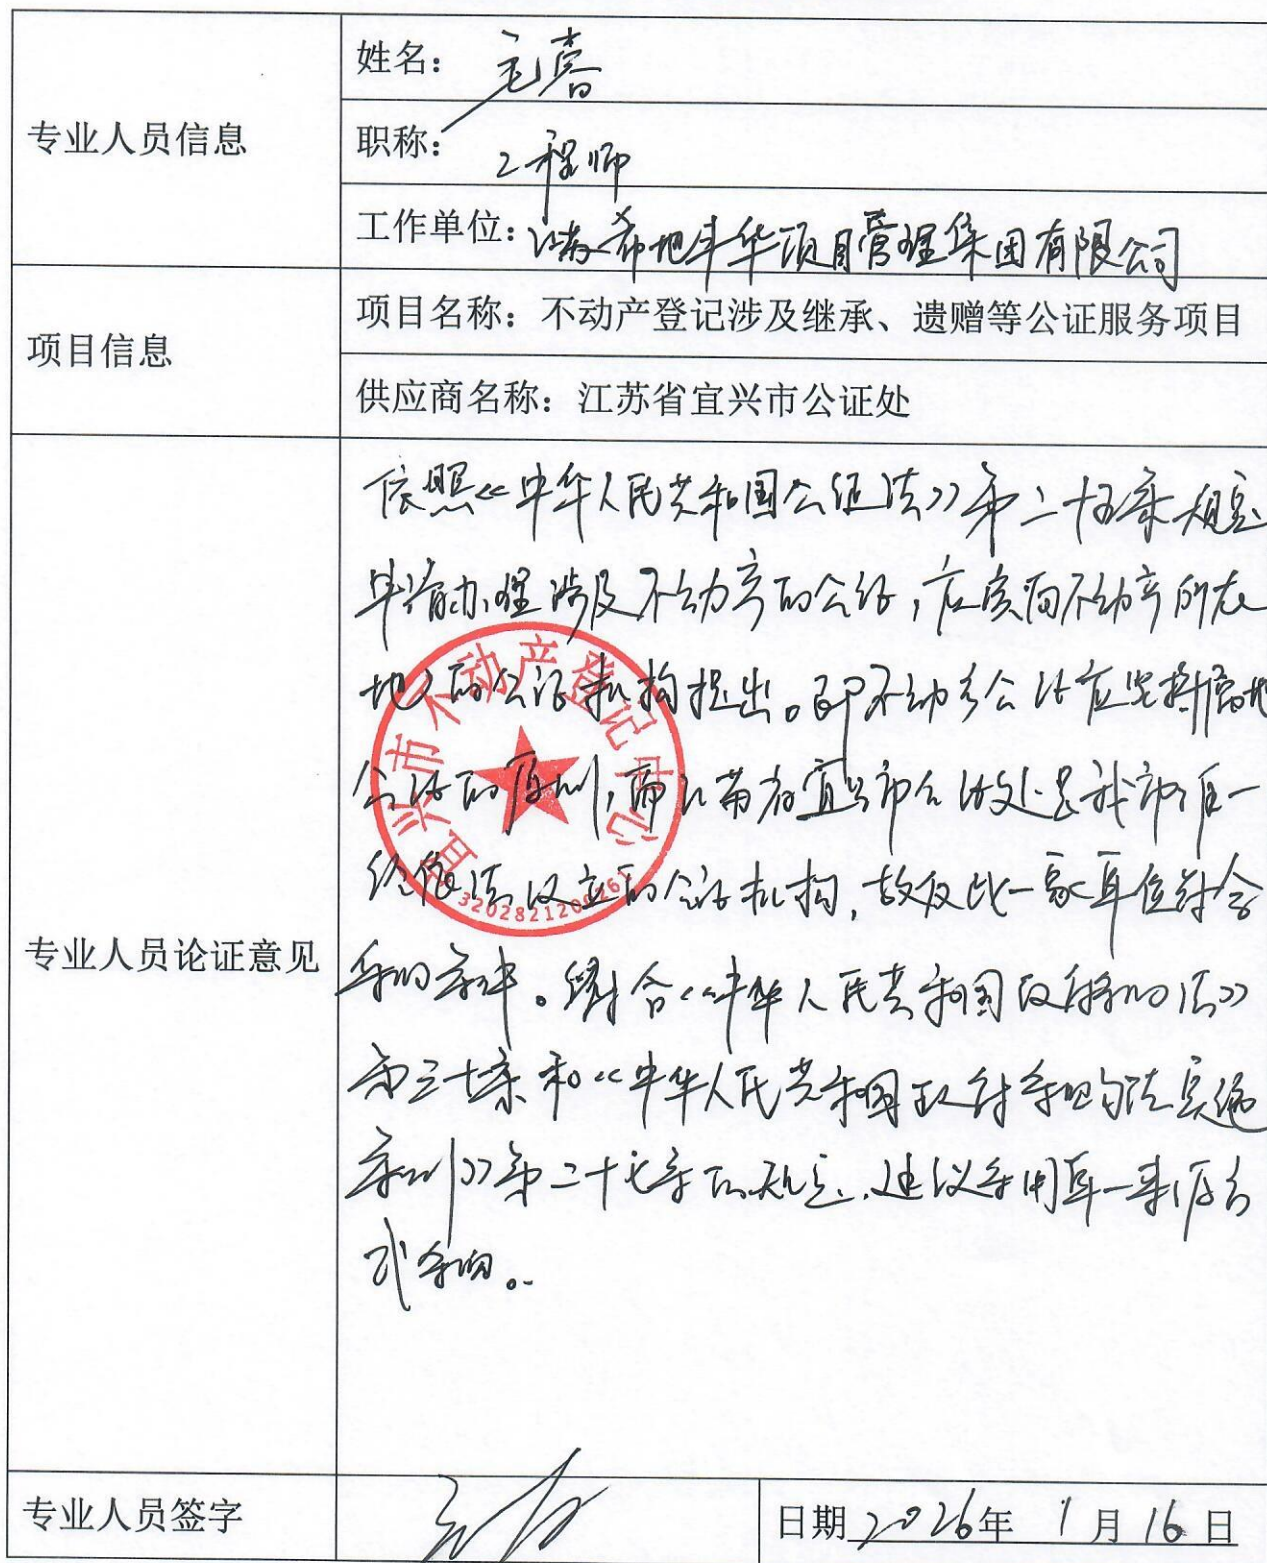 专业人员信息
姓名：毛
职称：工程师
工作单位：江苏希地丰华项目管理集团有限公司
项目信息
项目名称：不动产登记涉及继承、遗赠等公证服务项目
供应商名称：江苏省宜兴市公证处
专业人员论证意见
依照《中华人民共和国公证法》第二十五条规定
申请办理涉及不动产的公证，应当向不动产所在
地的公证机构提出。即不动产公证应坚持属地
公证的原则，而江苏省宜兴市公证处是我市唯一
经依法设立的公证机构，故仅此一家单位符合
采购条件。结合《中华人民共和国政府采购法》
第三十一条和《中华人民共和国政府采购法实施
条例》第二十七条的规定，建议采用单一来源方
式采购。
宜兴市不动产登记中心
专业人员签字
日期 2026年 1月16日